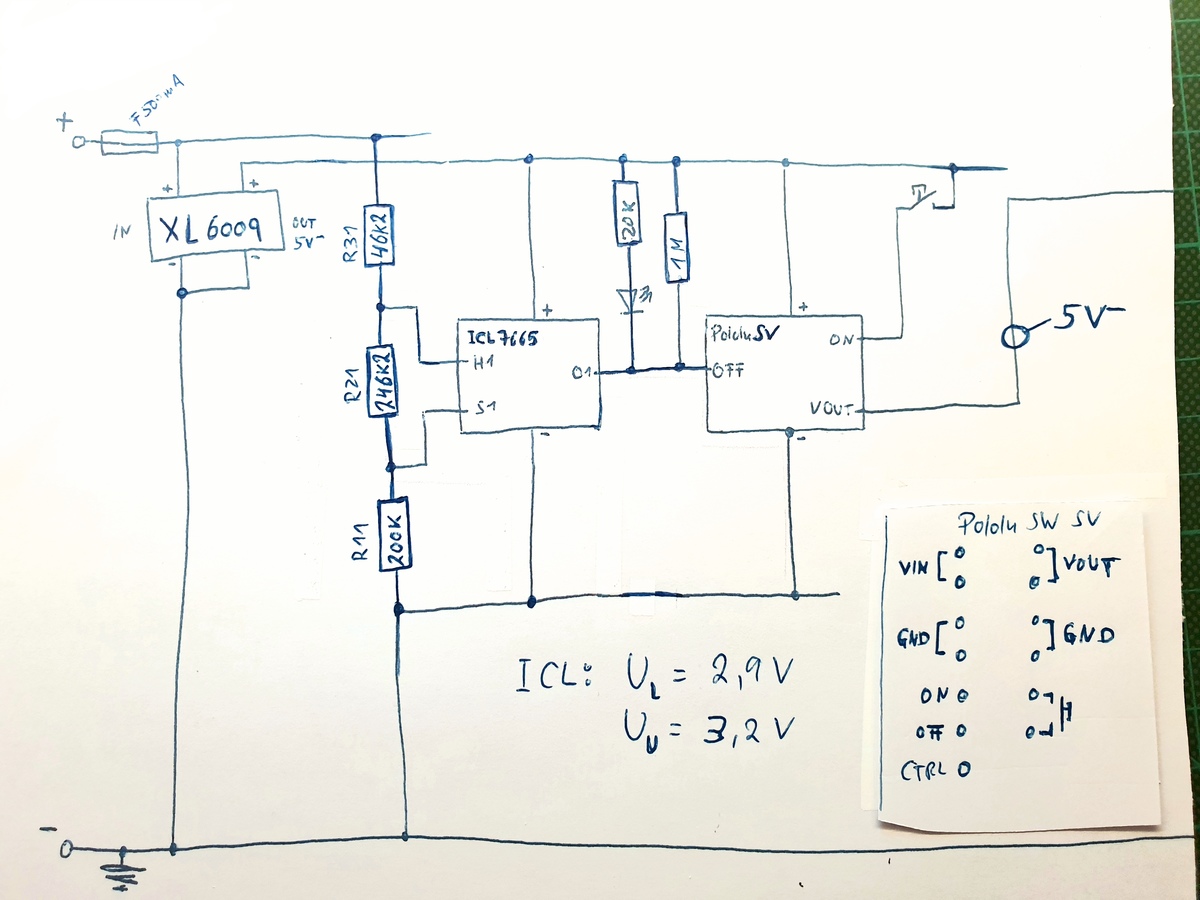 F500mA
+
+ +
IN XL6009 OUT
5V-
- -
R31 46K2
20K
1M
T
ICL7665
+
H1
O1
S1
-
R21 246K2
Pololu SV
+
ON
OFF
VOUT
-
5V-
R11 200K
ICL: UL = 2,9 V
UU = 3,2 V
Pololu SW SV
VIN VOUT
GND GND
ON
OFF H
CTRL
-